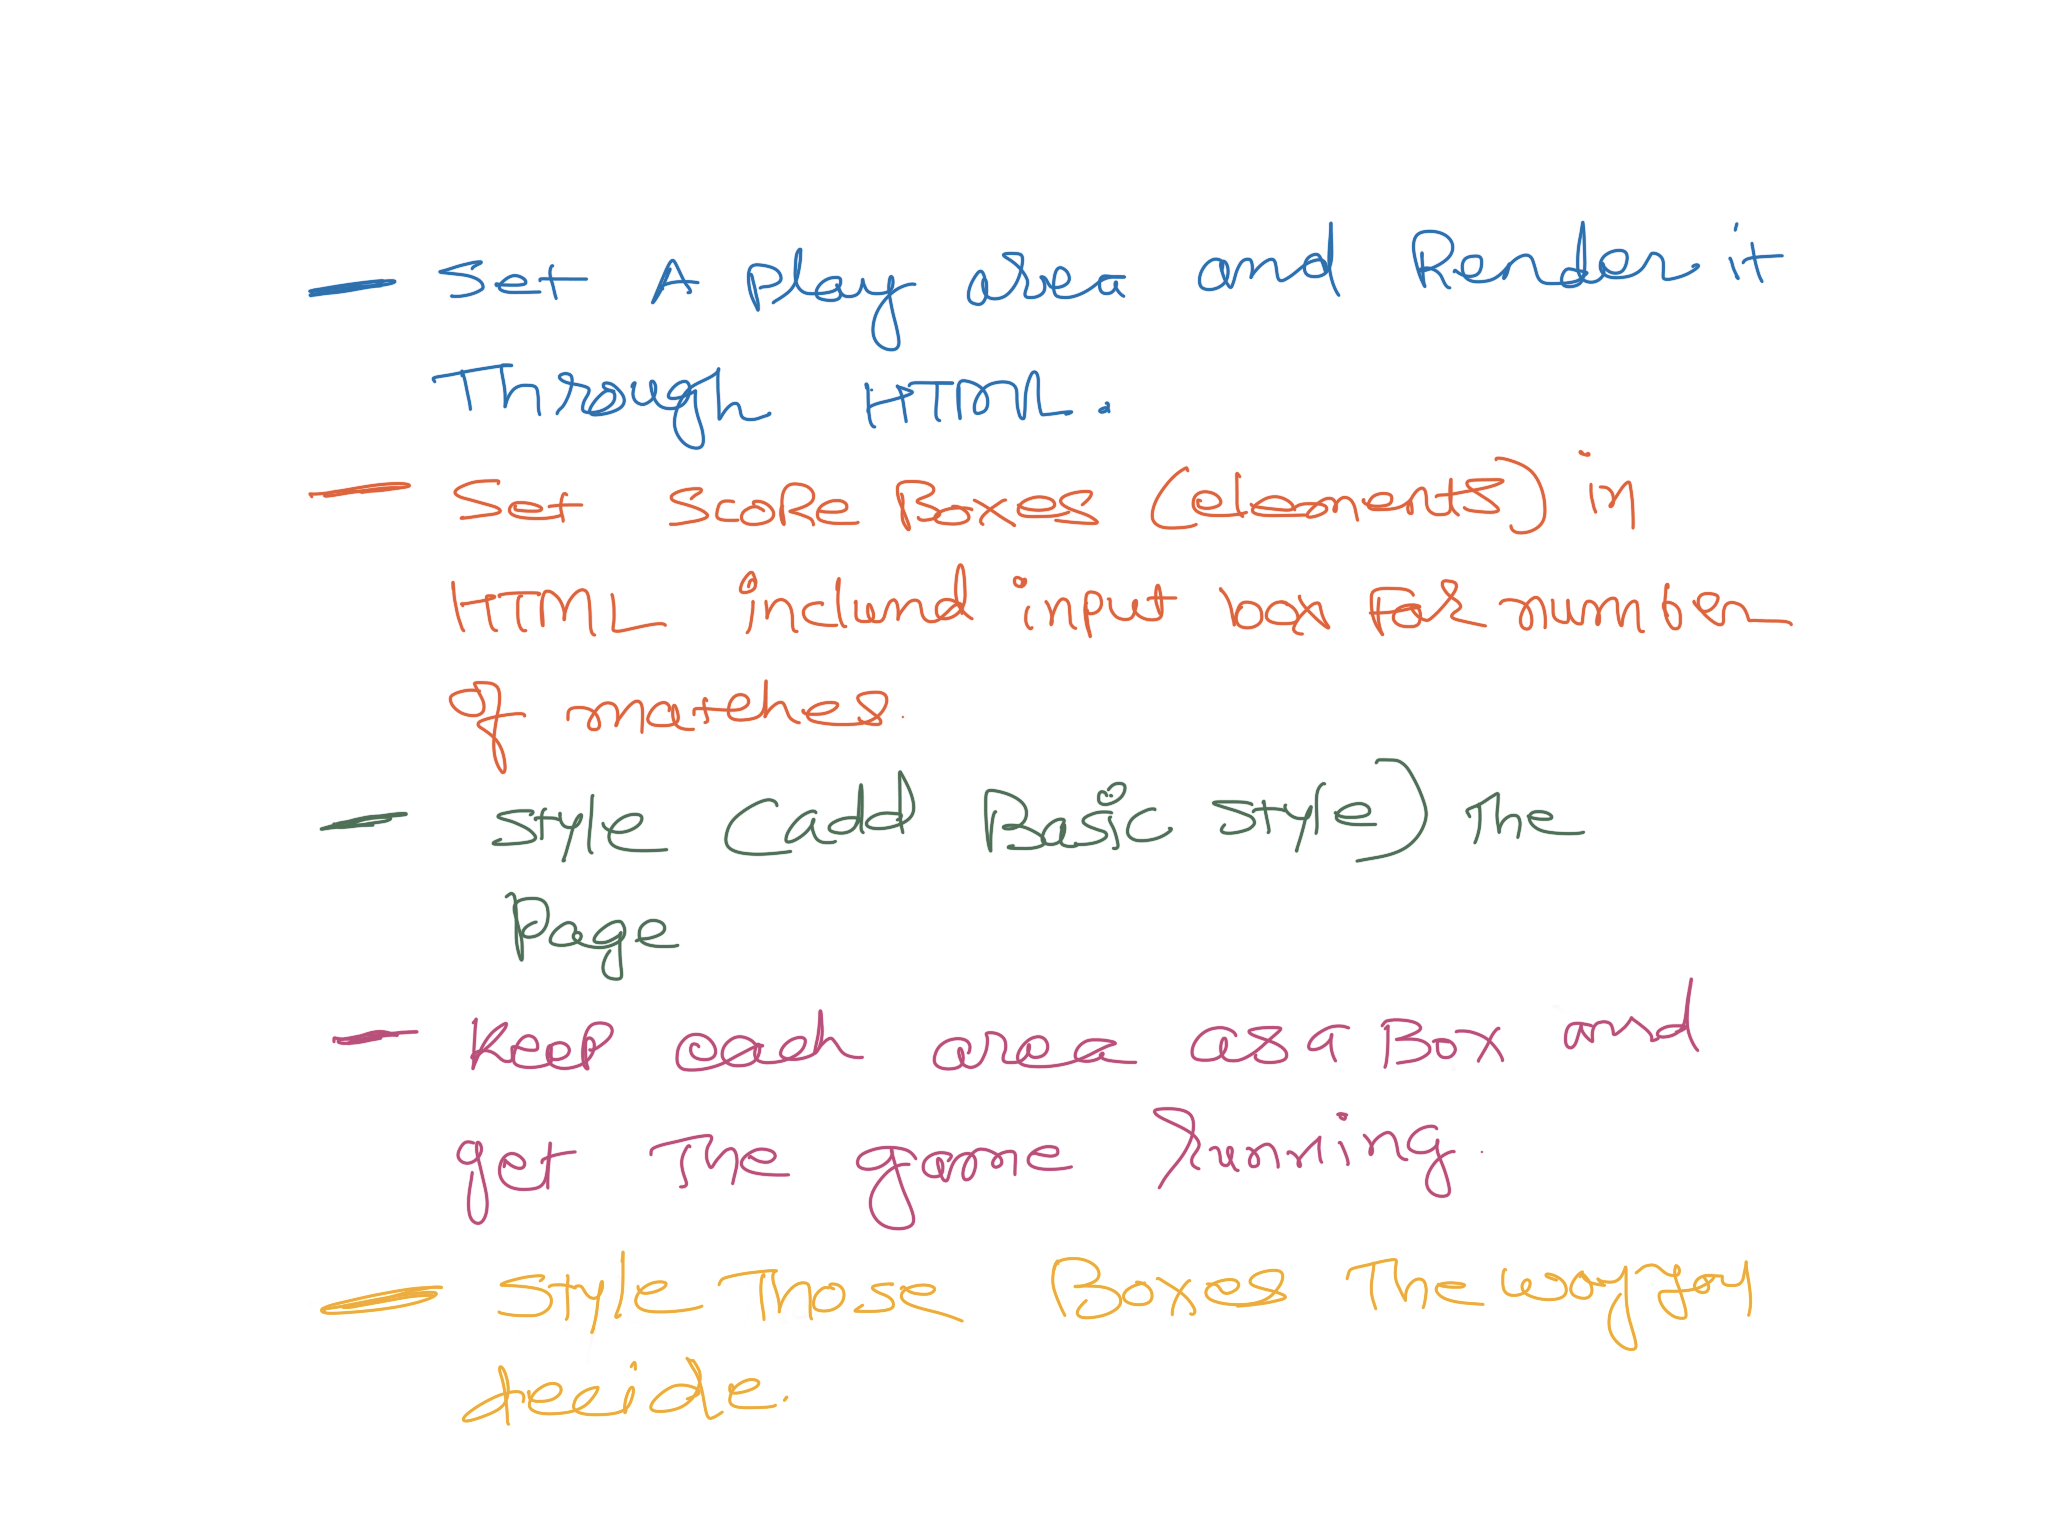 - Set A Play area and Render it
Through HTML.
- Set ScoRe Boxes (elements) in
HTML inclund input box For number
of matches.
- Style (add Basic Style) The
Page
- Keep each area as a Box and
get The game running.
- Style Those Boxes The way you
decide.